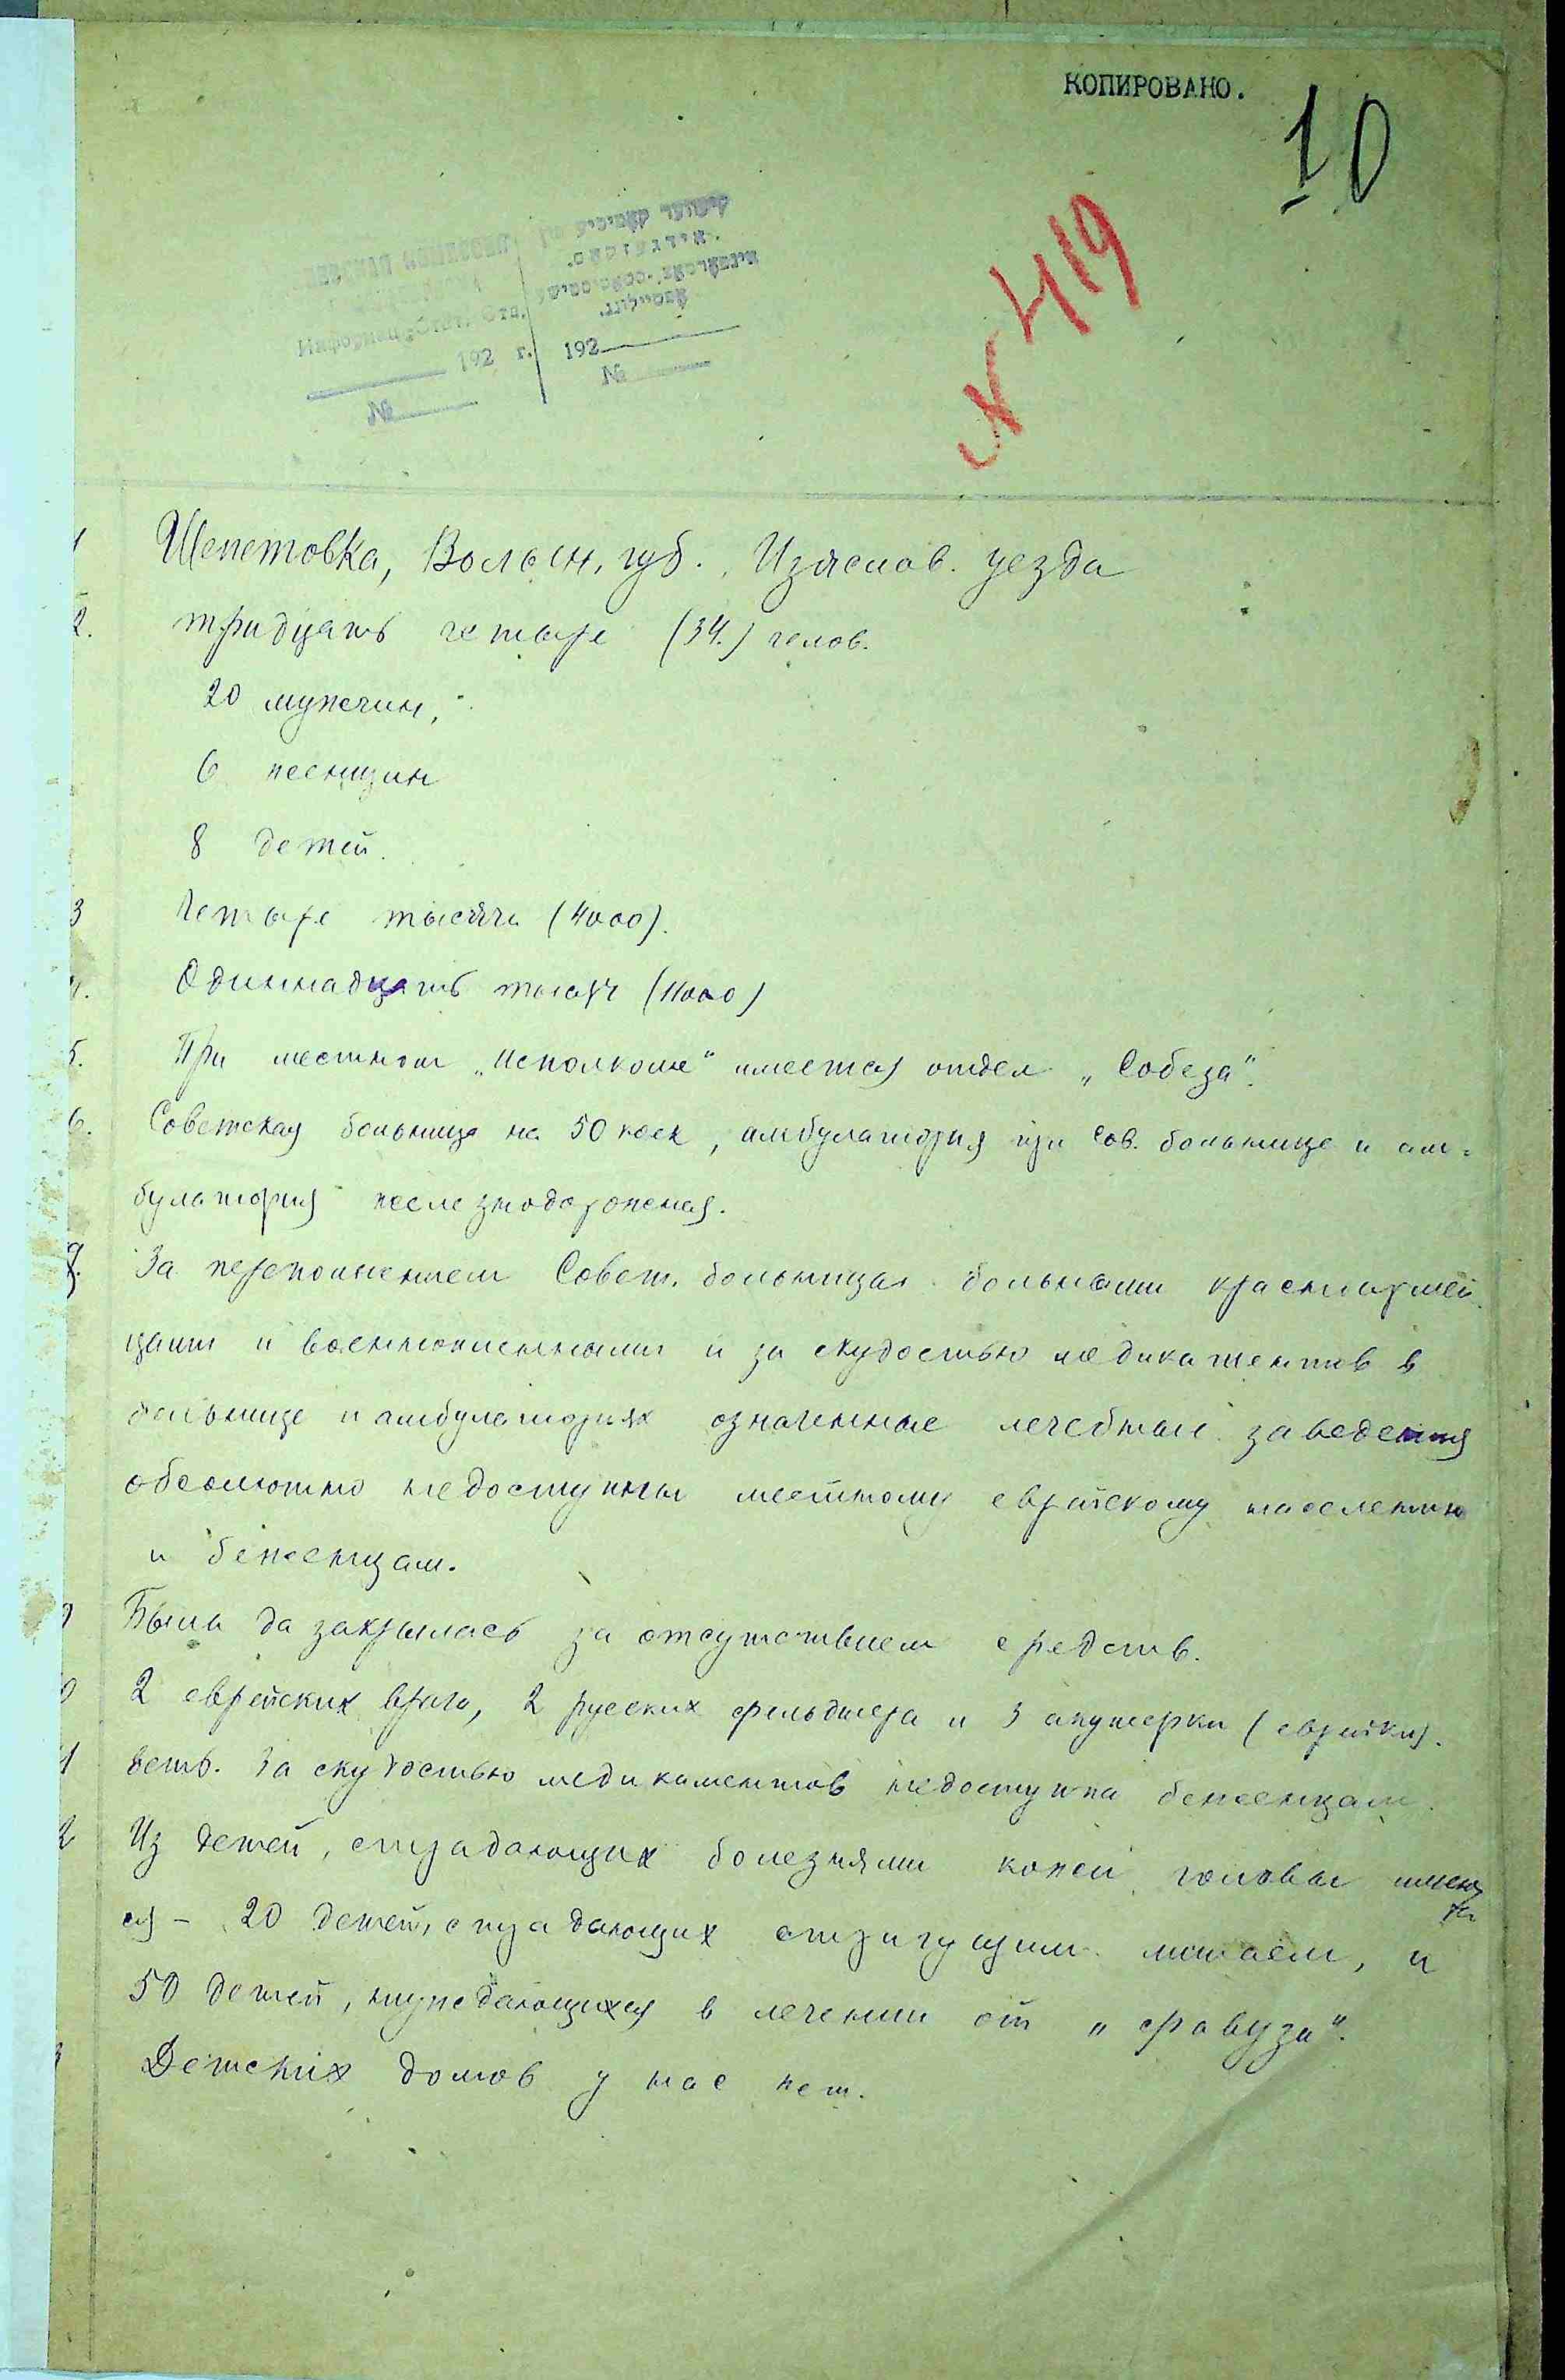 КОПИРОВАНО.
10
№ 419
Информац.-Стат. Отд.
192 г. 192
№ №
1 Шепетовка, Волын. губ. Изяслав. уезда
2. тридцать четыре (34.) челов.
20 мужчин,
6 женщин
8 детей.
3 Четыре тысячи (4000).
4. Одиннадцать тысяч (11000)
5. При местном „Исполкоме" имеется отдел „Собеза".
6. Советская больница на 50 коек, амбулатория при Сов. больнице и ам-
булатория железнодорожная.
За переполнением Совет. больницы больными красноармей
цами и военнопленными и за скудостью медикаментов в
больнице и амбулаториях означенные лечебные заведения
абсолютно недоступны местному еврейскому населению
и беженцам.
Была да закрылась за отсутствием средств.
2 еврейских врача, 2 русских фельдшера и 3 акушерки (еврейки).
Есть. За скудостью медикаментов недоступна беженцам.
Из детей, страдающих болезнями кожей головы имеют
ся - 20 детей, страдающих стригущим лишаем, и
50 детей, нуждающихся в лечении от „фавуза".
Детских домов у нас нет.